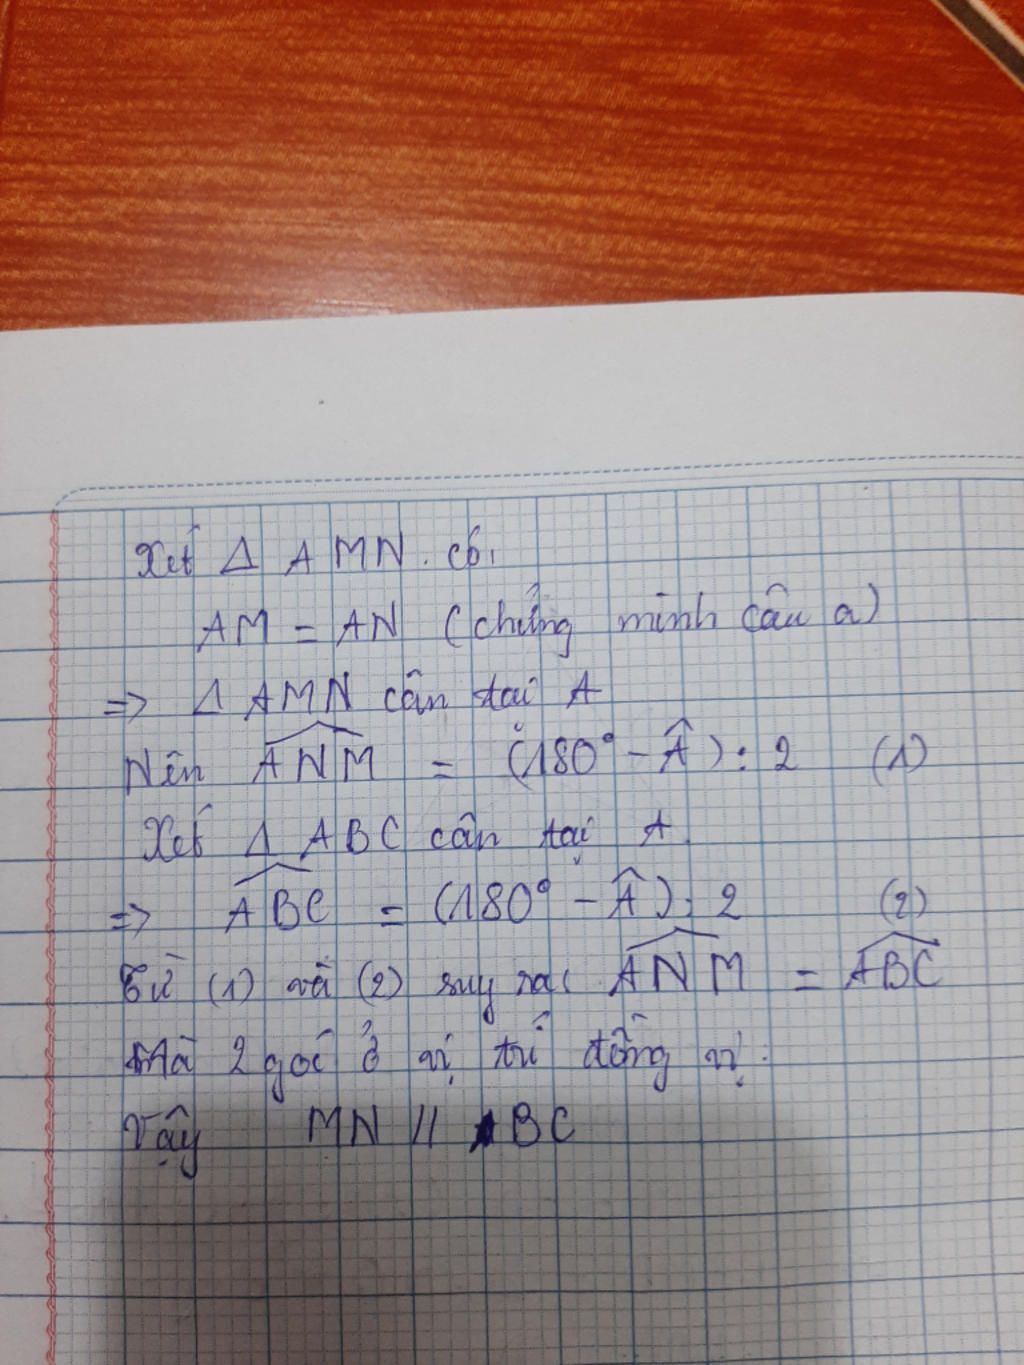 Xét Δ AMN. có,
AM = AN (chứng minh câu a)
=> Δ AMN cân tại A
Nên \widehat{ANM} = (180° - Â) : 2 (1)
Xét Δ ABC cân tại A.
=> \widehat{ABC} = (180° - Â) : 2 (2)
Từ (1) và (2) suy ra: \widehat{ANM} = \widehat{ABC}
Mà 2 góc ở vị trí đồng vị.
Vậy MN // BC